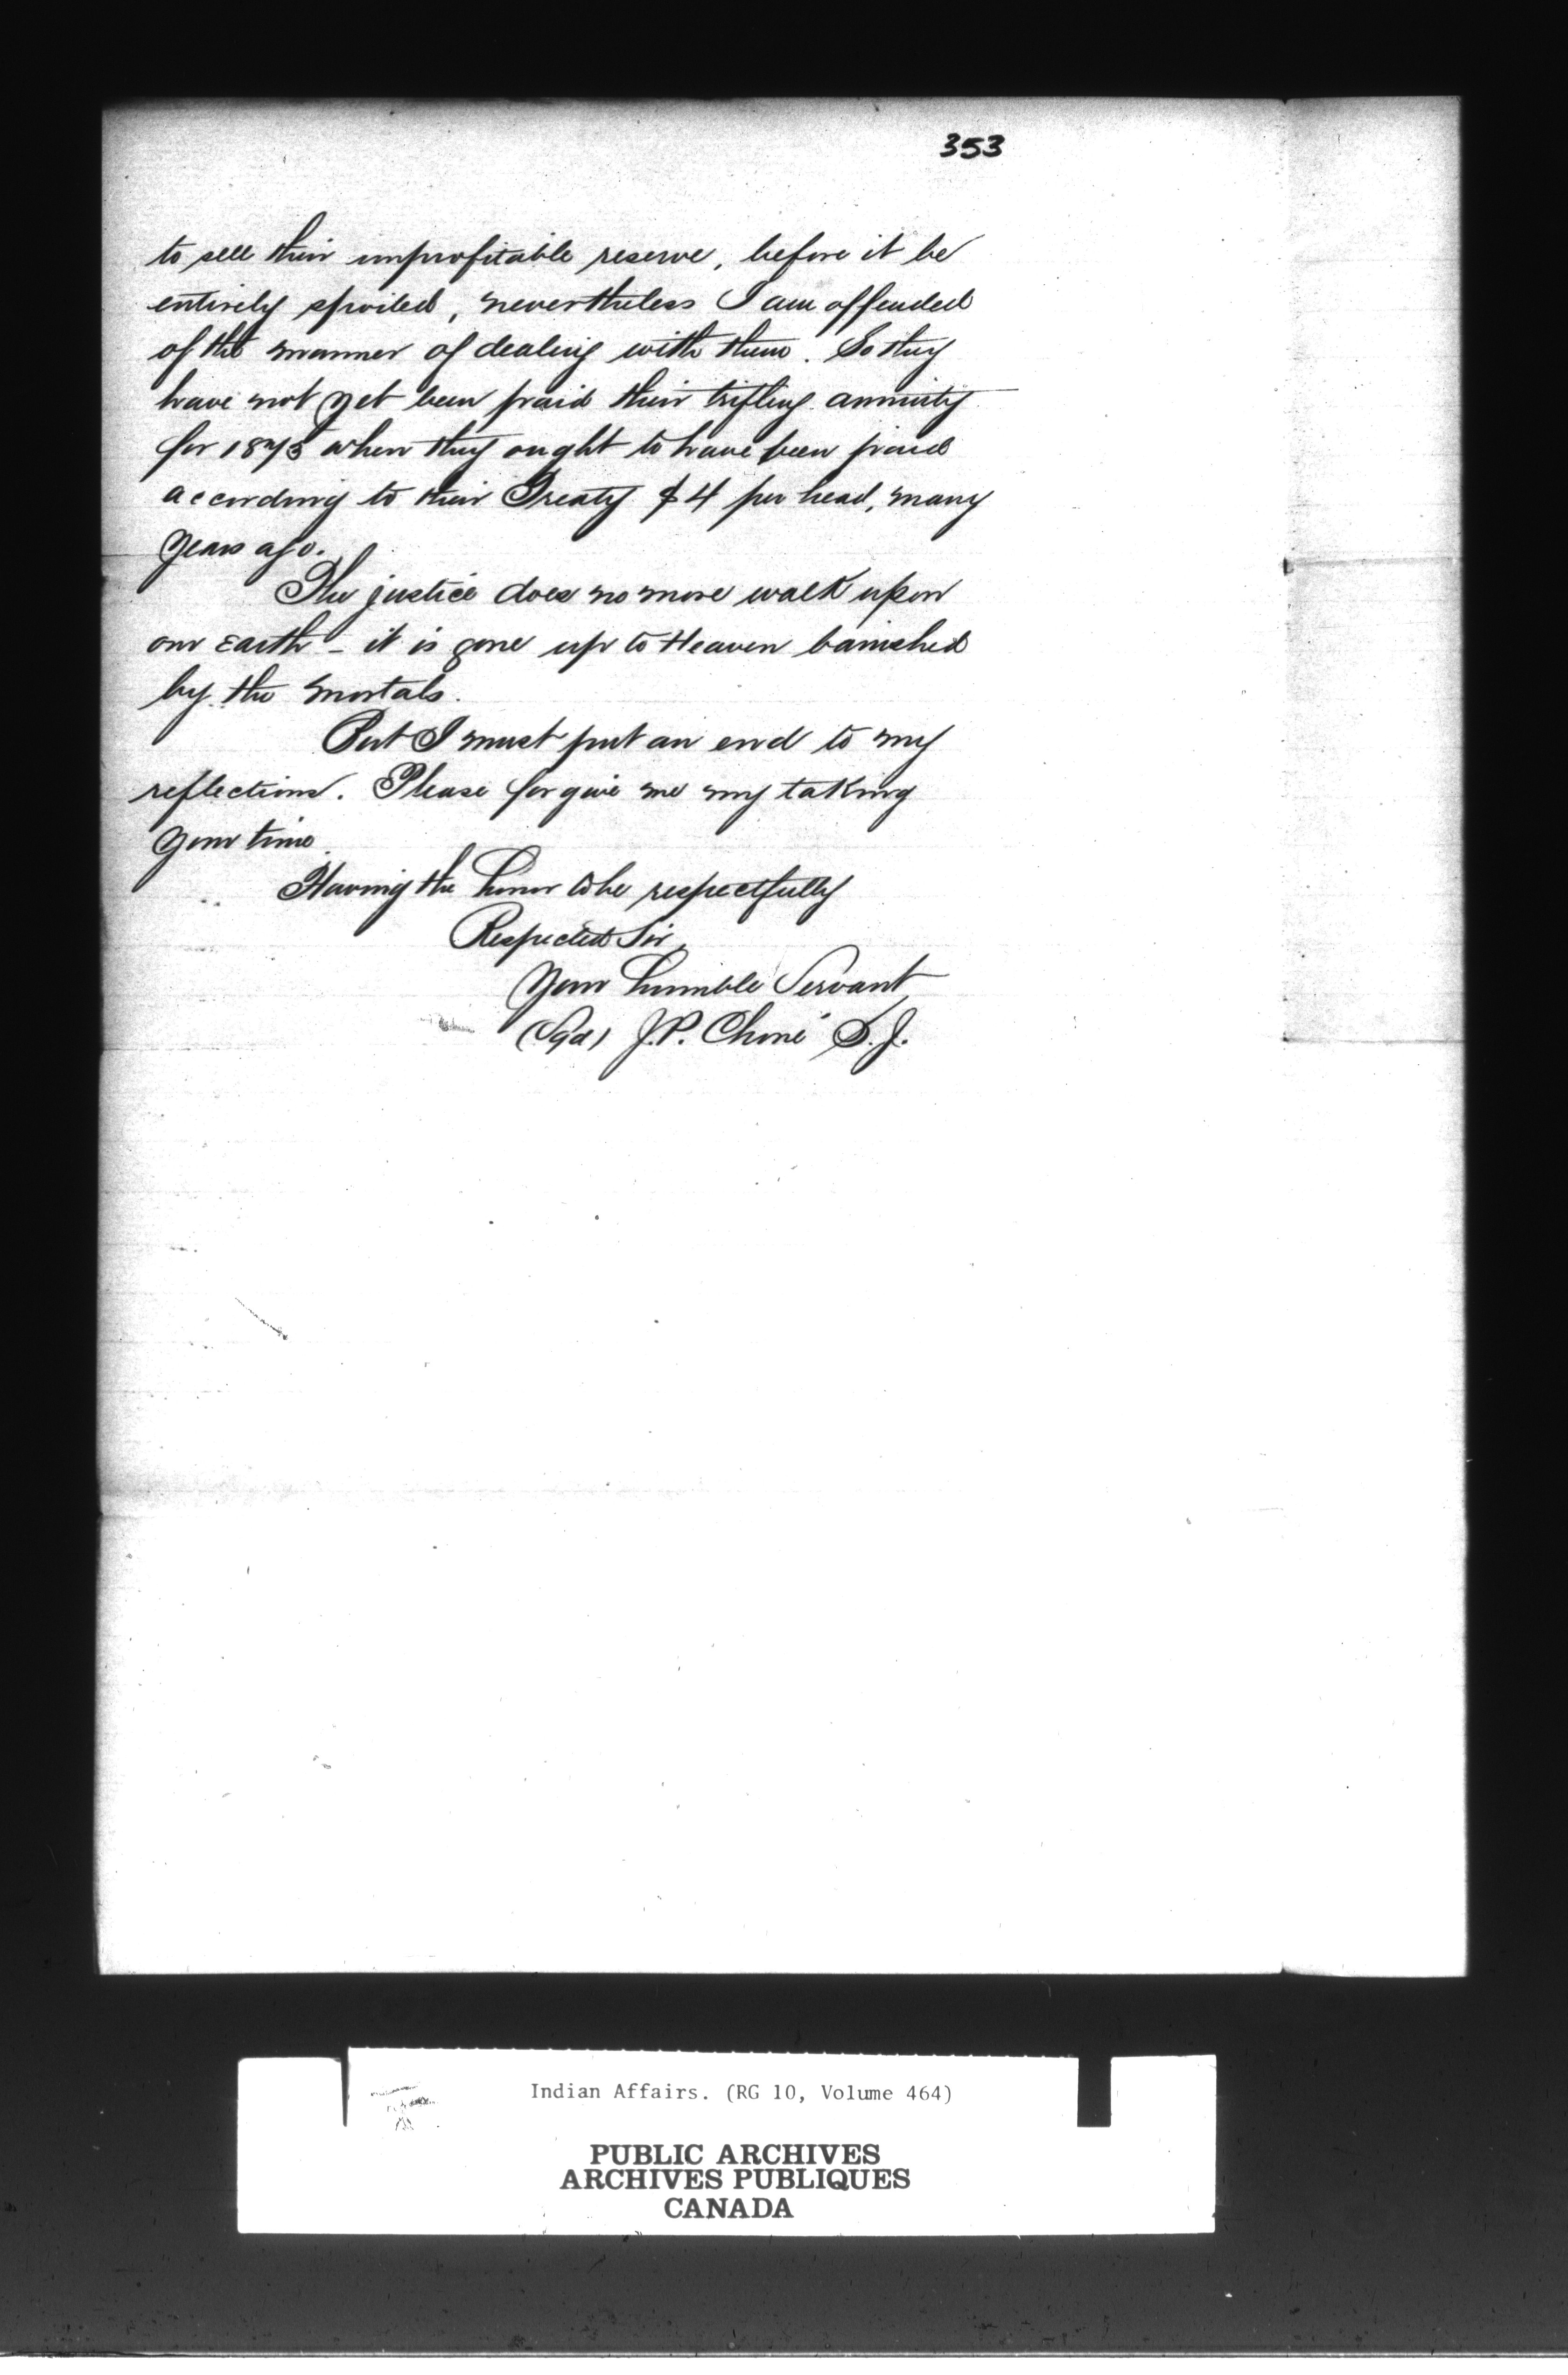 353
to sell their unprofitable reserve, before it be
entirely spoiled, nevertheless I am offended
of the manner of dealing with them. So they
have not yet been paid their trifling annuity
for 1873 when they ought to have been paid
according to their Treaty $4 per head, many
years ago.
The justice does no more walk upon
our Earth - it is gone up to Heaven banished
by the mortals.
But I must put an end to my
reflections. Please forgive me my taking
your time.
Having the honor to be respectfully
Respected Sir,
Your humble Servant
(Sgd) J.P. Choné S.J.
Indian Affairs. (RG 10, Volume 464)
PUBLIC ARCHIVES
ARCHIVES PUBLIQUES
CANADA